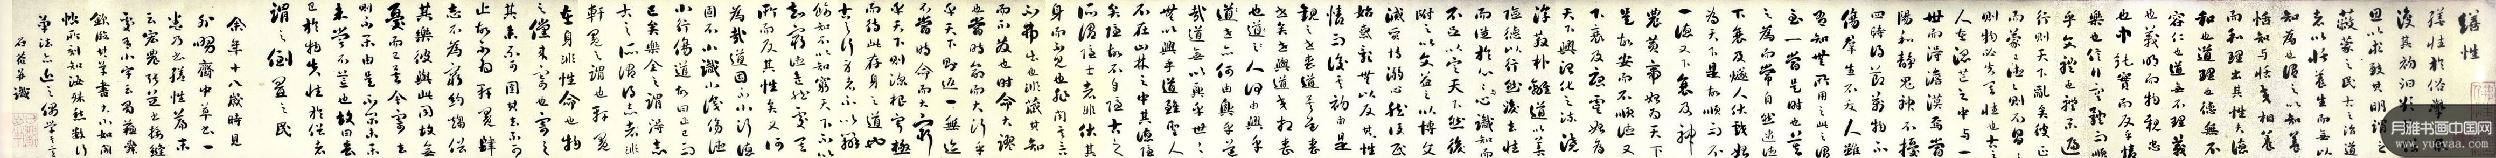 繕性
繕性於俗學以求
復其初滑欲於俗
思以求致其明謂之
蔽蒙之民古之治道
者以恬養知生而無以
知為也謂之以知養
恬知與恬交相養
而和理出其性夫德
和也道理也德無不
容仁也道無不理義
也義明而物親忠
也中純實而反乎情
樂也信行容體而順
乎文禮也禮樂遍
行則天下亂矣彼正
而蒙己德德則不冒冒
則物必失其性也古之
人在混芒之中與一
世而得澹漠焉當是時也陰
陽和靜鬼神不擾
四時得節萬物不
傷群生不夭人雖
有知無所用之此之謂
至一當是時也莫
之為而常自然逮德
下衰及燧人伏戲始
為天下是故順而不
一德又下衰及神
農黃帝始為天下
是故安而不順德又
下衰及唐虞始為
天下興治化之流澆
淳散朴離道以善
險德以行然後去性
而從於心心與心識知而
不足以定天下然後
附之以文益之以博文
滅質博溺心然後民
始惑亂無以反其性
情而復其初由是
觀之世喪道矣道喪
世矣世與道交相喪
也道之人何由興乎
世世亦何由興乎道
哉道無以興乎世
世無以興乎道雖聖人
不在山林之中其德隱
矣隱故不自隱古之
所謂隱士者非伏其
身而弗見也非閉其言而
不出也非藏其知
而不發也時命大謬
也當時命而大行乎
天下則反一無跡
不當時命而大窮
乎天下則深根寧極
而待此存身之道也
古之行身者不以辯
飾知不以知窮天下不以
知窮德危然處其
所而反其性已又何
為哉道固不小行德
固不小識小識傷德
小行傷道故曰正己而
已矣樂全之謂得志
古之所謂得志者非
軒冕之謂也軒冕
在身非性命也物
之儻來寄也寄之
其來不可圉其去不可
止故不為軒冕肆
志不為窮約趨俗
其樂彼與此同故無
憂而已矣今寄去
則不樂由是
未嘗不荒也故曰喪
己於物失性於俗者
謂之倒置之民
余年十八歲時見
月雅书画中国网
www.yueyaa.com